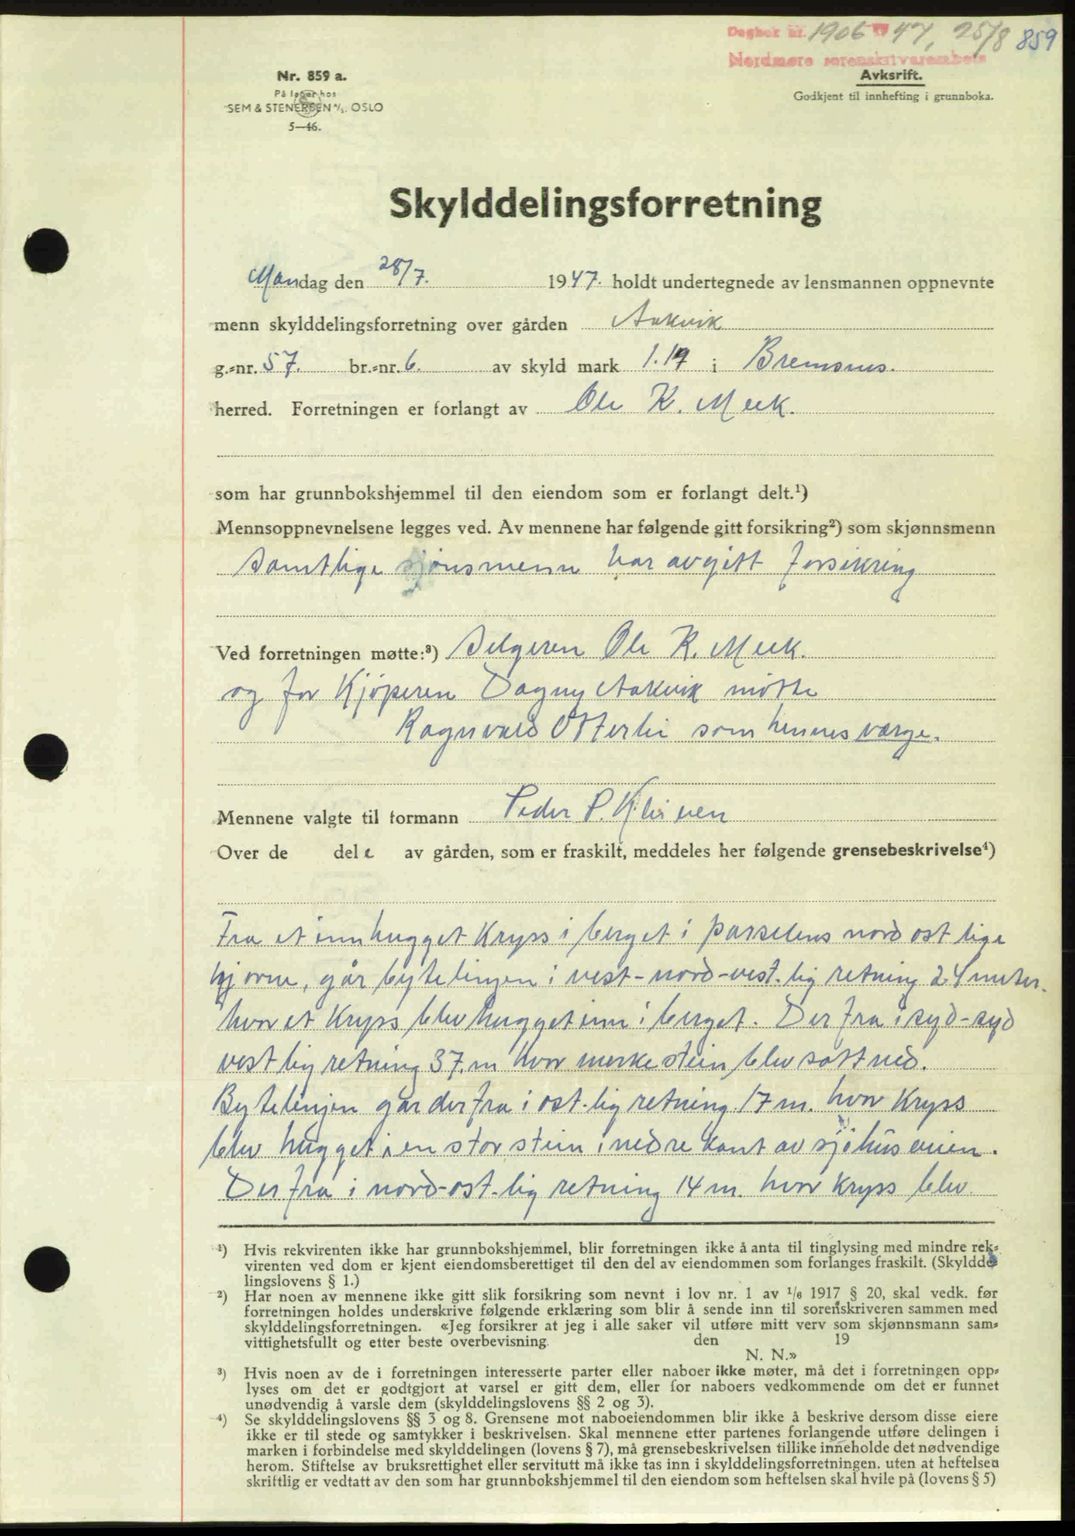 Dagbok nr. 1906 47, 25/8 859
Nordmøre sorenskriverembete
Nr. 859 a.
På lager hos
SEM & STENERSEN A/S, OSLO
5—46.
Avksrift.
Godkjent til innhefting i grunnboka.
Skylddelingsforretning
Mandag den 28/7. 1947. holdt undertegnede av lensmannen oppnevnte
menn skylddelingsforretning over gården Aakvik
g.=nr. 57. br.=nr. 6. av skyld mark 1.19 i Bremsnes.
herred. Forretningen er forlangt av Ole K. Meek.
som har grunnbokshjemmel til den eiendom som er forlangt delt.¹)
Mennsoppnevnelsene legges ved. Av mennene har følgende gitt forsikring²) som skjønnsmenn
Samtlige sjønsmenn har avgitt forsikring
Ved forretningen møtte:³) Selgeren Ole K. Meek.
og for Kjøperen Dagny Aakvik møtte
Ragnvald Otterlei som hennes værge.
Mennene valgte til formann Peder P. Kleiven
Over de del e av gården, som er fraskilt, meddeles her følgende grensebeskrivelse⁴)
Fra et innhugget Kryss i berget i parselens nordostlige
hjørne, går bytelinjen i vest-nord-vest.lig retning 24 meter.
hvor et Kryss blev hugget inn i berget. Derfra i syd-syd
vestlig retning 37 m hvor merkestein blev satt ned.
Bytelinjen går derfra i ost.lig retning 17 m. hvor Kryss
blev hugget i en stor stein i nedre kant av sjøhusveien.
Derfra i nord-ost.lig retning 14 m. hvor kryss blev.
¹) Hvis rekvirenten ikke har grunnbokshjemmel, blir forretningen ikke å anta til tinglysing med mindre rek=
virenten ved dom er kjent eiendomsberettiget til den del av eiendommen som forlanges fraskilt. (Skyldde
lingslovens § 1.)
²) Har noen av mennene ikke gitt slik forsikring som nevnt i lov nr. 1 av 1/6 1917 § 20, skal vedk. før
forretningen holdes underskrive følgende erklæring som blir å sende inn til sorenskriveren sammen med
skylddelingsforretningen. «Jeg forsikrer at jeg i alle saker vil utføre mitt verv som skjønnsmann sam=
vittighetsfullt og etter beste overbevisning. den 19
N. N.»
³) Hvis noen av de i forretningen interesserte parter eller naboer ikke møter, må det i forretningen opp=
lyses om det er godtgjort at varsel er gitt dem, eller for naboers vedkommende om det er funnet
unødvendig å varsle dem (skylddelingslovens §§ 2 og 3).
⁴) Se skylddelingslovens §§ 3 og 8. Grensene mot naboeiendommen blir ikke å beskrive dersom disse eiere
ikke er til stede og samtykker i beskrivelsen. Skal mennene etter partenes forlangende utføre delingen i
marken i forbindelse med skylddelingen (lovens § 7), må grensebeskrivelsen tillike inneholde det nødvendige
herom. Stiftelse av bruksrettighet eller servitutt må ikke tas inn i skylddelingsforretningen. uten at heftelsen
skriftlig er vedtatt av den som har grunnbokshjemmel til den eiendom som heftelsen skal hvile på (lovens § 5)